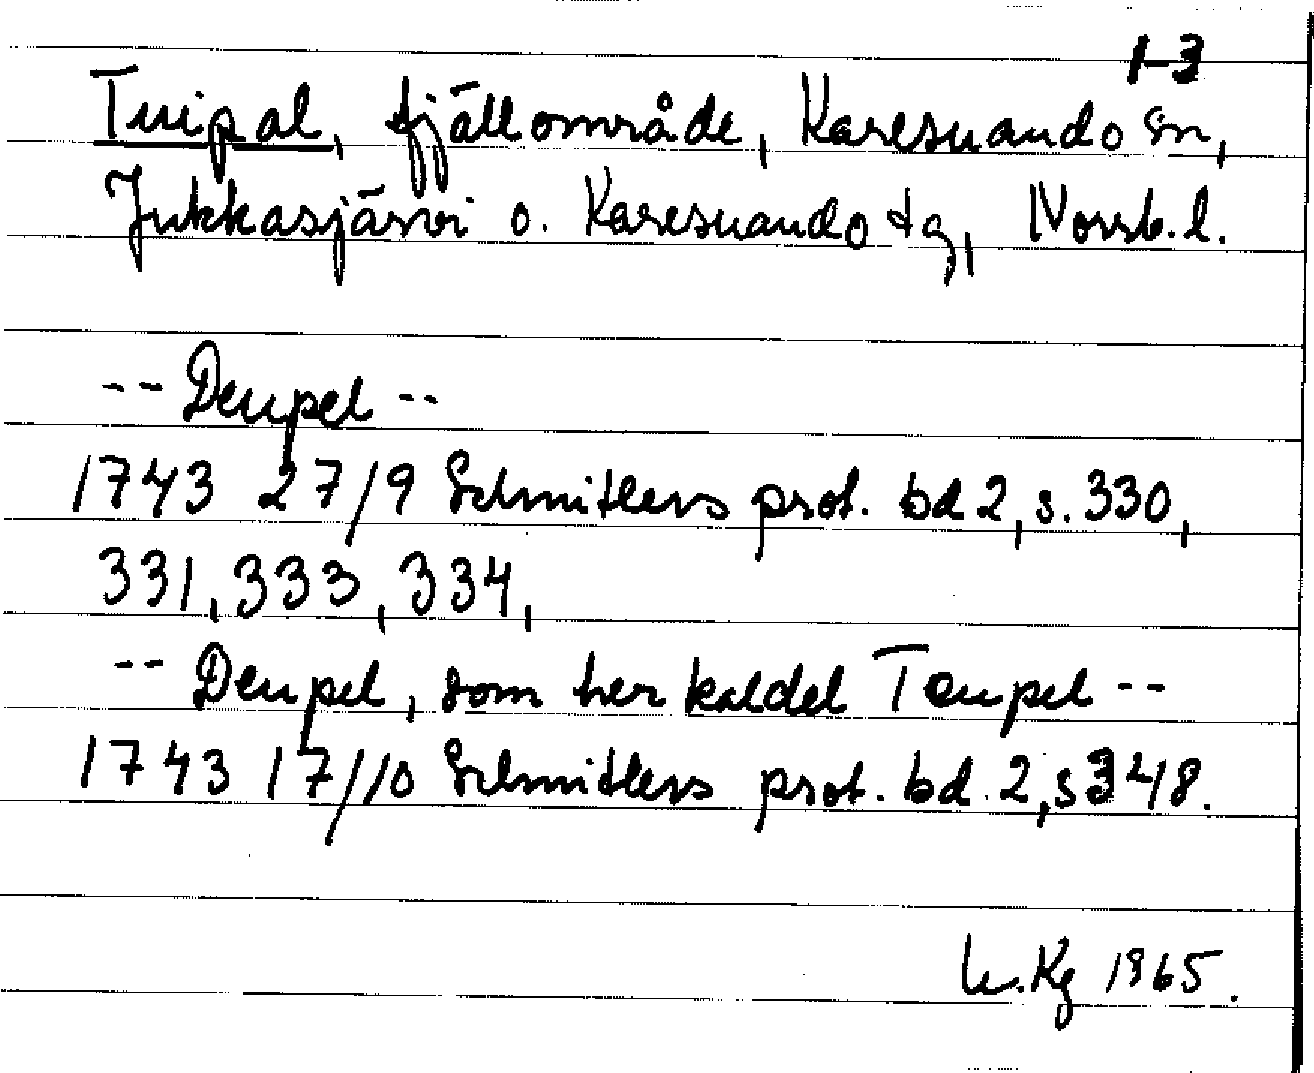 1-3
Tuipal, fjällområde, Karesuando sn,
Jukkasjärvi o. Karesuando tg, Norrb.l.
-- Deupel --
1743 27/9 Schnitlers prot. bd 2, s. 330,
331, 333, 334,
-- Deupel, som her kaldet Teupel --
1743 17/10 Schnitlers prot. bd. 2, s 348.
Kg 1965.